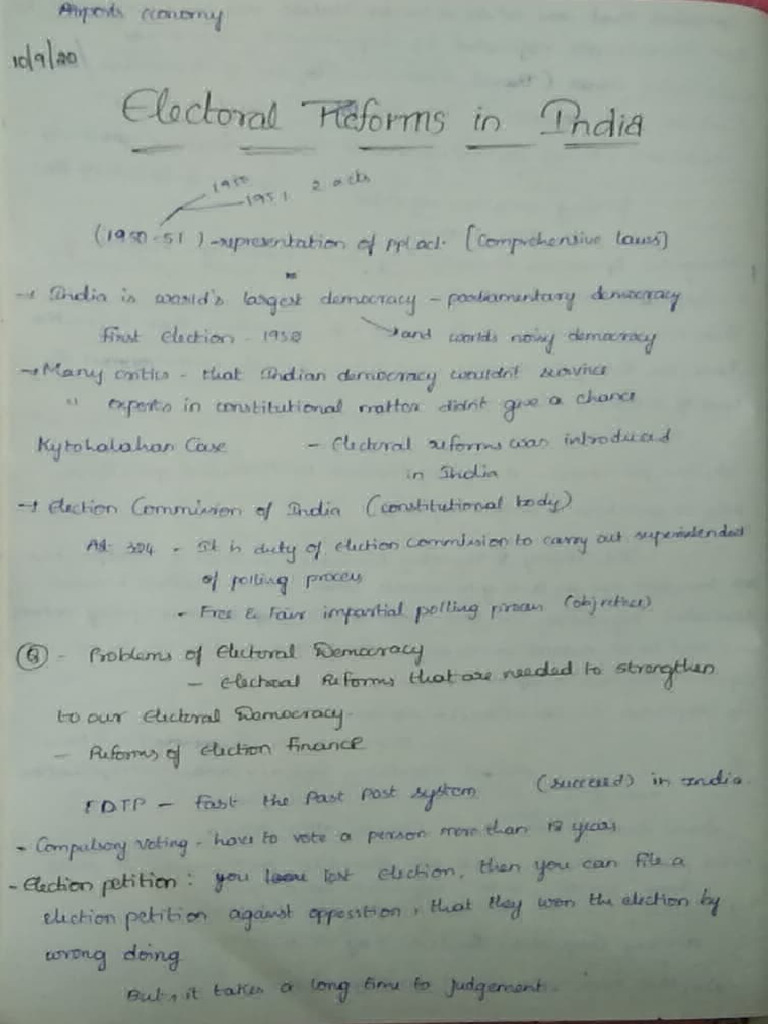 economy
10/9/20
Electoral Reforms in India
1950
1951 2 acts
(1950-51) - representation of ppl act. [Comprehensive laws]
→ India is world's largest democracy - parliamentary democracy
First Election - 1950 and worlds noisy democracy
→ Many critics - that Indian democracy wouldn't survive
" experts in constitutional matter didn't give a chance
Case - Electoral reforms was introduced
in India
→ Election Commission of India (constitutional body)
Art. 324 - It is duty of election commission to carry out
of polling process
- Free & Fair impartial polling process (objectives)
Q - Problems of Electoral Democracy
- Electoral Reforms that are needed to strengthen
to our Electoral Democracy.
- Reforms of Election Finance
FDTP - Fast the Past Post system (succeed) in India.
- Compulsory Voting - have to vote a person more than 18 years
- Election petition: you lost election, then you can file a
election petition against opposition, that they won the election by
wrong doing
But, it takes a long time to judgement.